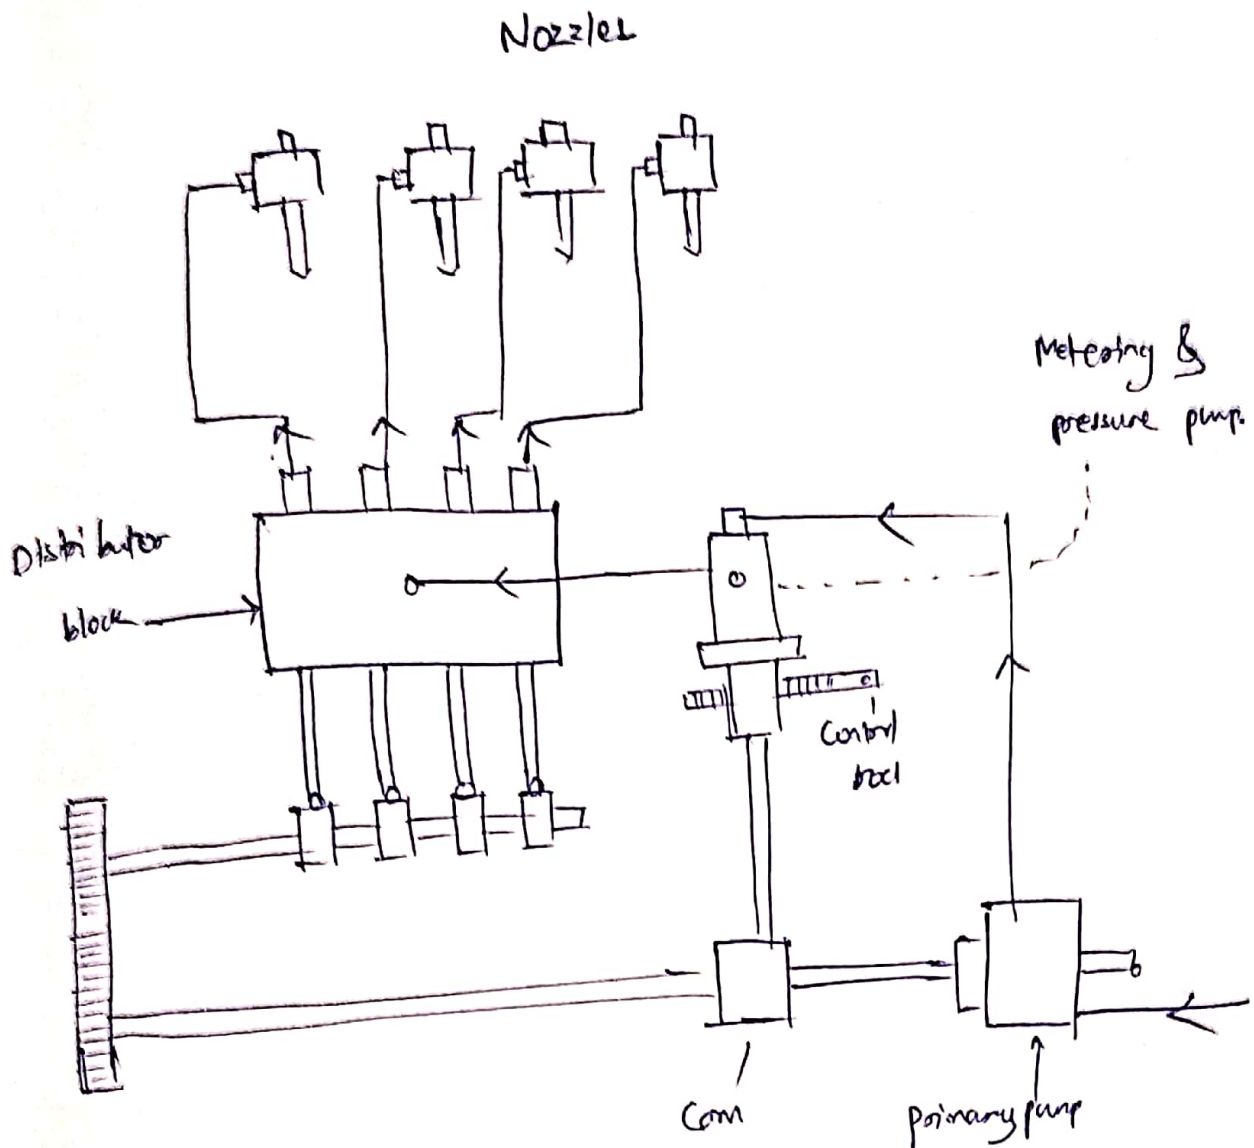 Nozzles
Metering &
pressure pump.
Distributor
block
Control
rod
Cam
primary pump